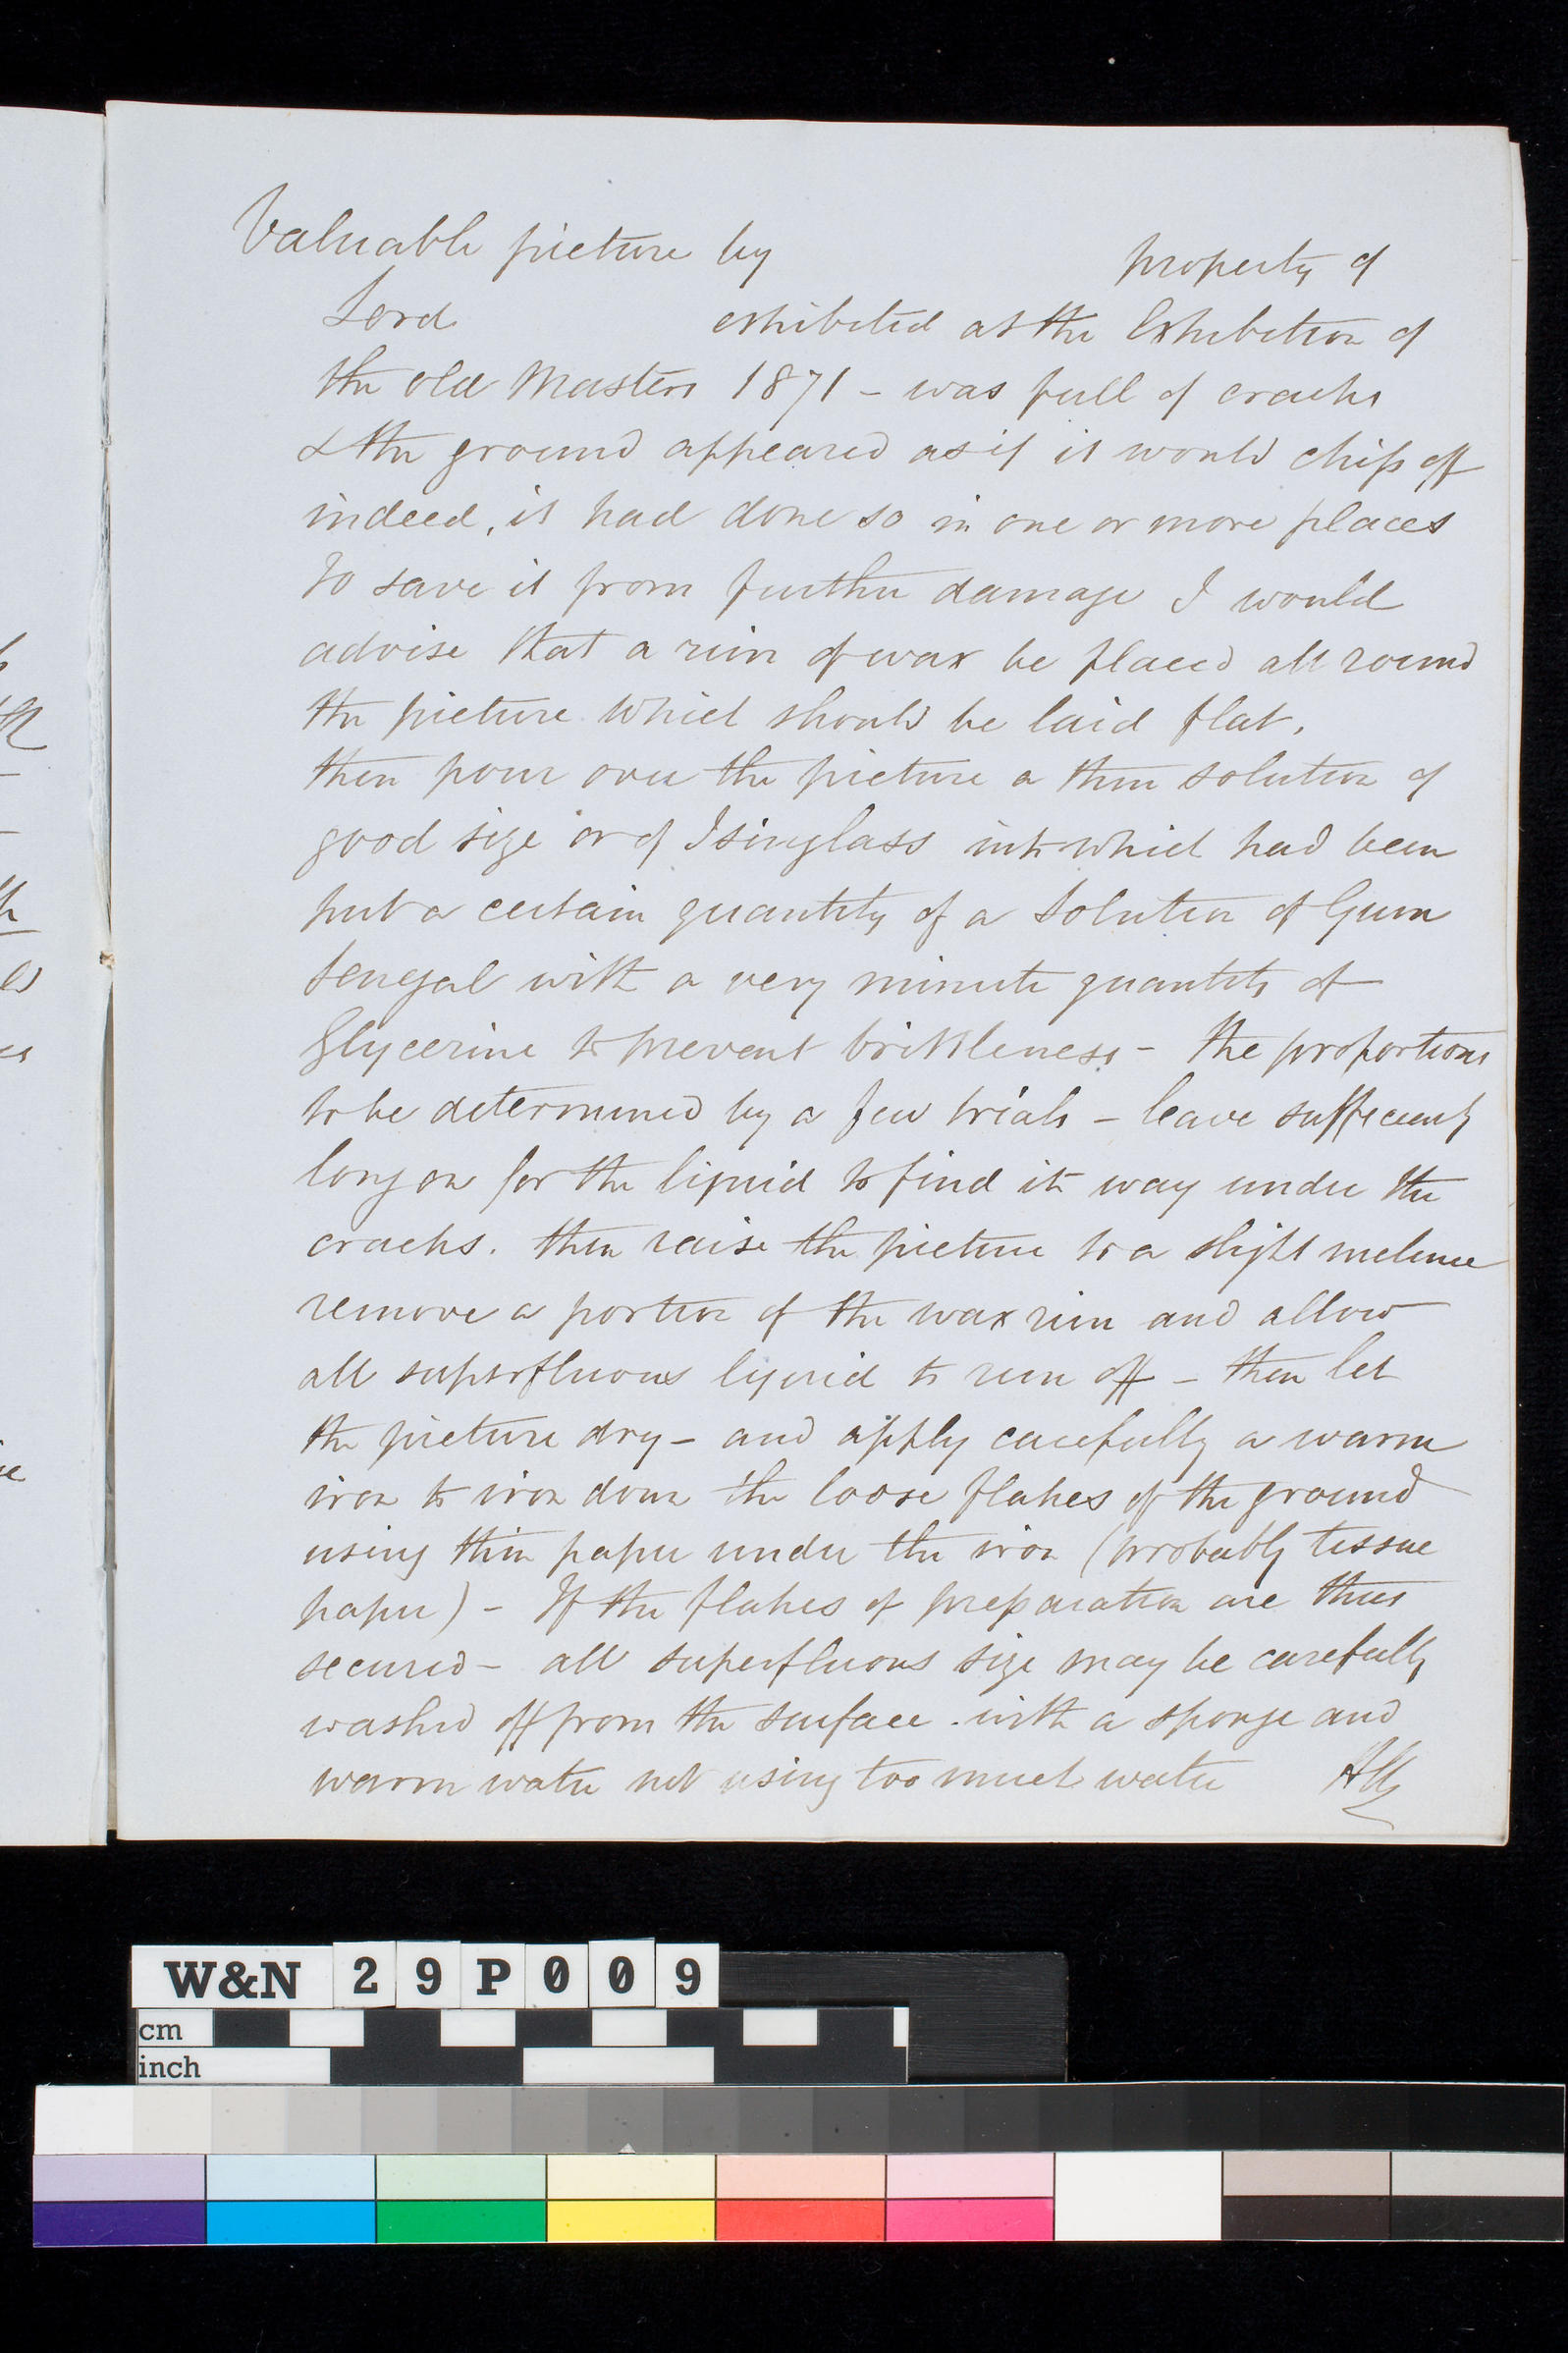 Valuable picture by property of
Lord exhibited at the Exhibition of
the old Masters 1871 - was full of cracks
& the ground appeared as if it would chip off
indeed, it had done so in one or more places
To save it from further damage I would
advise that a rim of wax be placed all round
the picture which should be laid flat.
then pour over the picture a thin solution of
good size or of Isinglass into which had been
put a certain quantity of a Solution of Gum
Senegal with a very minute quantity of
Glycerine to prevent brittleness - the proportions
to be determined by a few trials - leave sufficiently
long on for the liquid to find its way under the
cracks. then raise the picture to a slight incline
remove a portion of the wax rim and allow
all superfluous liquid to run off - then let
the picture dry - and apply carefully a warm
iron to iron down the loose flakes of the ground
using thin paper under the iron (probably tissue
paper) - If the flakes of preparation are thus
secured - all superfluous size may be carefully
washed off from the surface . with a sponge and
warm water not using too much water
W&N 29P009
cm
inch